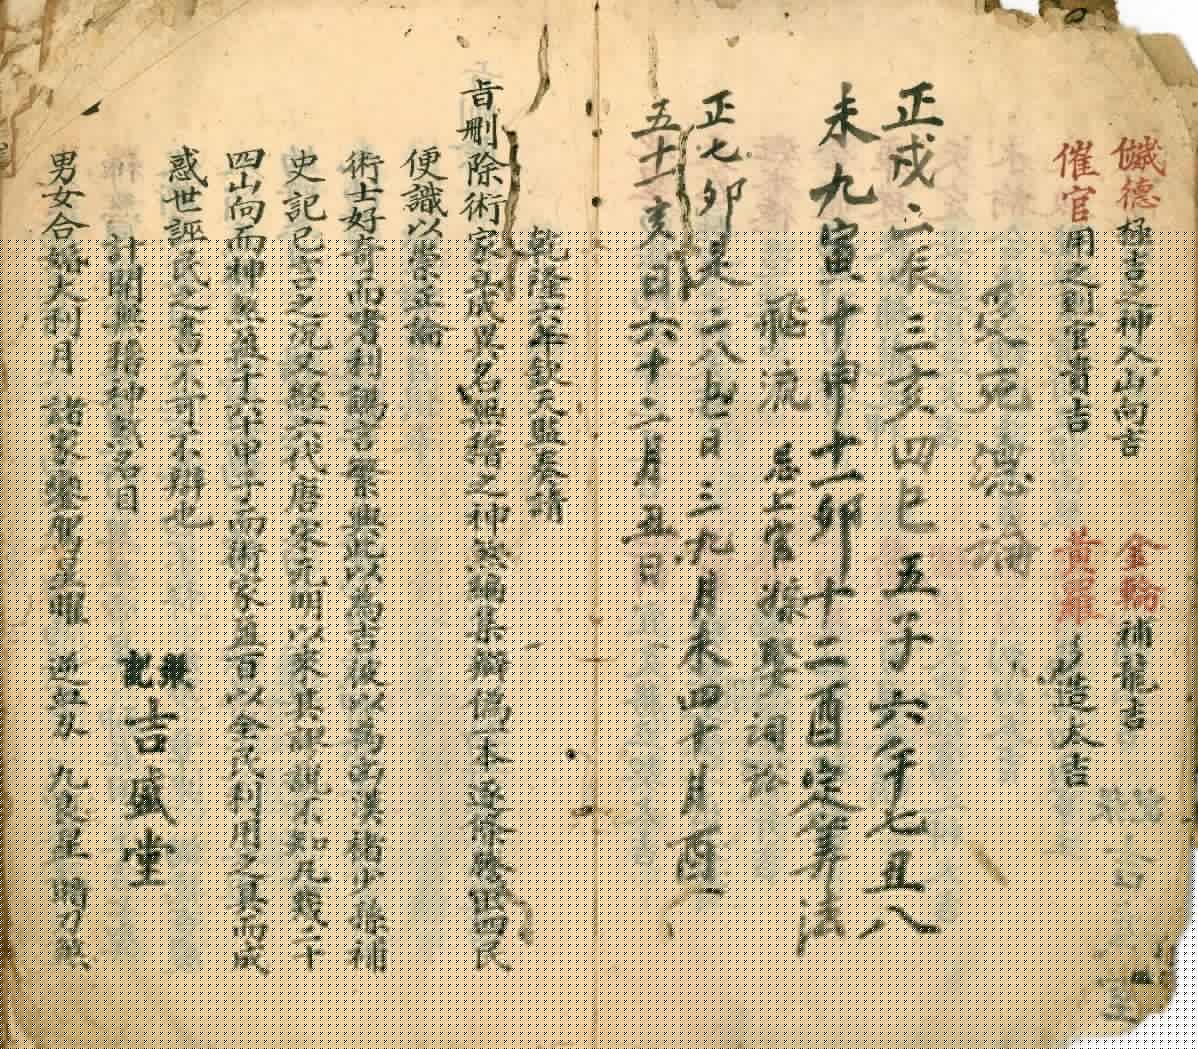 德 極吉之神入山向吉 金輪 補龍吉
催官 用之則官貴吉 黃羅 造大吉
受死總論
正戌二辰三亥四巳五子六午七丑八
未九寅十申十一卯十二酉定筭法
飛流 忌上官嫁娶詞訟
正七卯是二八日三九月未四十月酉
五十一亥日六十二月丑日
乾隆六年欽天監奏請
旨刪除術家立成異名無稽之神煞編集辯偽本逐條 四民
便識以崇正論
術士好奇而嗜利謁言繁興此以為吉彼以為凶漢褚少孫補
史記已言之況又經六代唐宋元明以來其訛說不知凡幾二十
四山向而神煞 十六甲子而術家 百以全民利用之具而成
惑世誣民之書不可不辯也
計開無稽神煞名目
男女合婚大利月 諸家鑾駕星曜 逆血刃 九良星 暗刀煞
吉盛堂
記